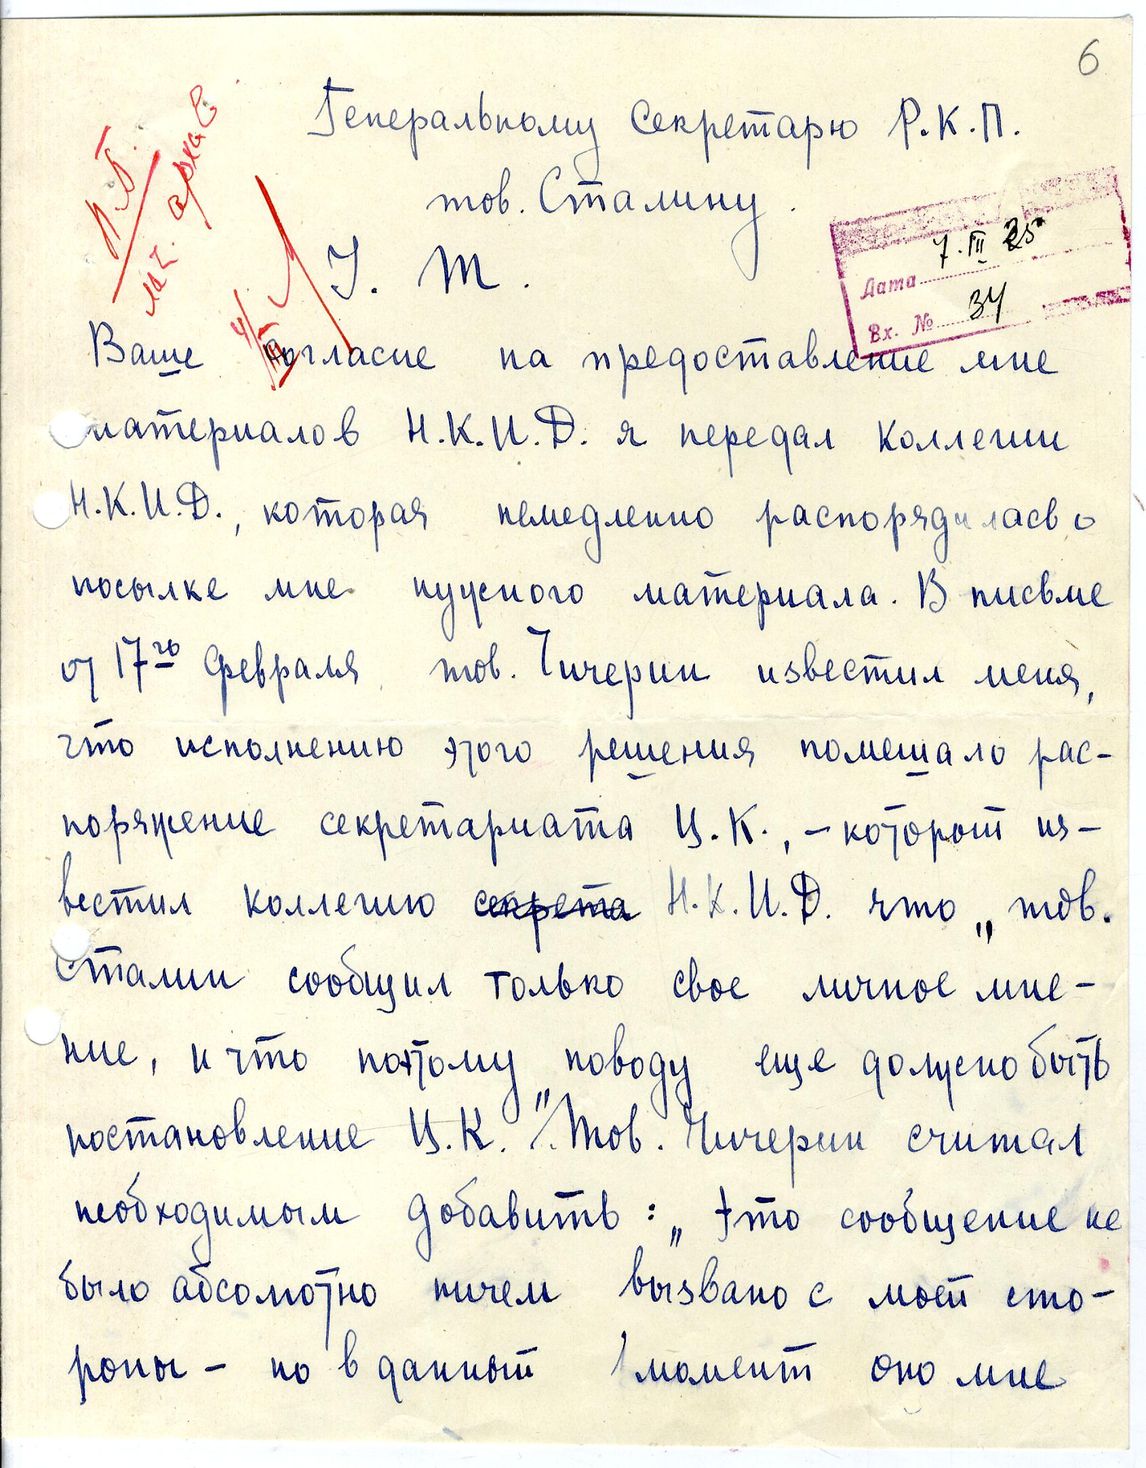 6
Генеральному секретарю Р.К.П.
тов. Сталину.
У. Т.
П.Б.
лич. архив
Дата 7.III 25
Вх. № 34
Ваше согласие на предоставление мне
материалов Н.К.И.Д. я передал Коллегии
Н.К.И.Д., которая немедленно распорядилась о
посылке мне нужного материала. В письме
от 17го февраля тов. Чичерин известил меня,
что исполнению этого решения помешало рас-
поряжение секретариата Ц.К., – который из-
вестил коллегию секрета Н.К.И.Д. что „тов.
Сталин сообщил только свое личное мне-
ние, и что по этому поводу еще должно быть
постановление Ц.К.". Тов. Чичерин считал
необходимым добавить: „Это сообщение не
было абсолютно ничем вызвано с моей сто-
роны – но в данный момент оно мне